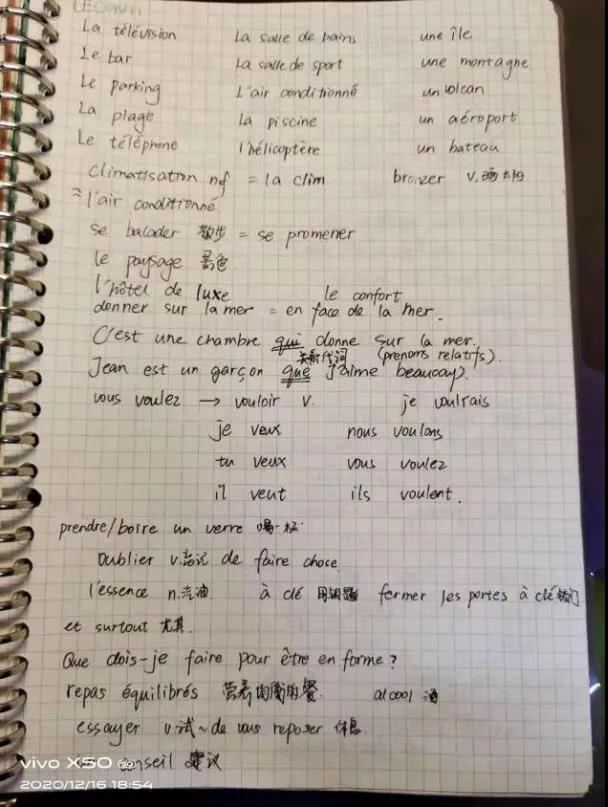 LEÇON 11
La télévision La salle de bains une île
Le bar La salle de sport une montagne
Le parking L'air conditionné un volcan
La plage La piscine un aéroport
Le téléphone l'hélicoptère un bateau
climatisation nf = la clim bronzer v.晒太阳
= l'air conditionné
se balader 散步 = se promener
le paysage 景色
l'hôtel de luxe le confort
donner sur la mer = en face de la mer.
C'est une chambre qui donne sur la mer.
关系代词 (prenoms relatifs).
Jean est un garçon que j'aime beaucoup.
vous voulez → vouloir v. je voulrais
je veux nous voulons
tu veux vous voulez
il veut ils voulent.
prendre/boire un verre 喝一杯
oublier v.忘记 de faire chose
l'essence n.汽油 à clé 用钥匙 fermer les portes à clé 锁门
et surtout 尤其.
Que dois-je faire pour être en forme?
repas équilibrés 营养均衡的餐 alcool 酒
essayer v.试~de vous reposer 休息.
conseil 建议
vivo X50
2020/12/16 18:54